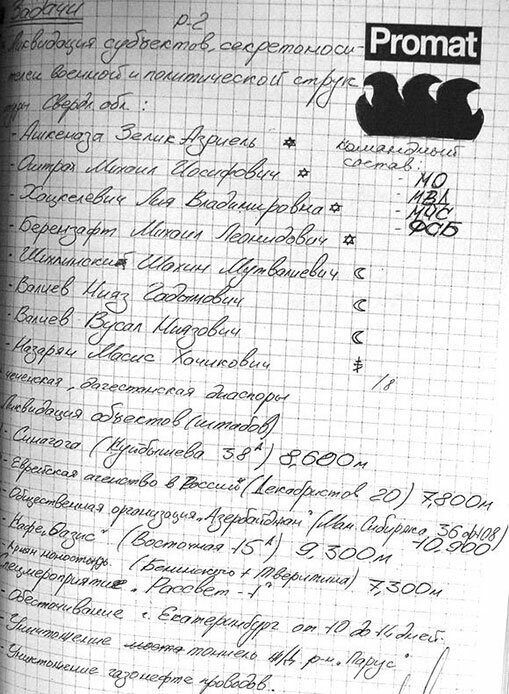 Задачи
р-2
Promat
Ликвидация субъектов, секретоноси-
телей военной и политической струк
туры Свердл. обл.:
- Ашкеназа Зелик Азриель ✡
командный
состав:
- Оштрах Михаил Иосифович ✡
- МО
- МВД
- МЧС
- ФСБ
- Хоцкелевич Лия Владимировна ✡
- Берензафт Михаил Леонидович ✡
- Шихлинский Шахин Мутвалиевич ☾
- Валиев Нияз ☾
- Валиев Вусал Ниязович ☾
- Назарян Масис Хачикович
/8
чеченская, дагестанская диаспоры
Ликвидация объектов (штабов)
- Синагога (Куйбышева 38ᴬ) 8,600м
- Еврейская агенство в России (Декабристов 20) 7,800м
- Общественная организация „Азербайджан" (Мам. Сибиряка, 36 оф 108) 10,900
- Кафе „Оазис" (Восточная 15ᴬ) 9,300м
(Белинского + Тверитина) 7,300м
спецмероприятие „Рассвет - 1"
- Обесточивание г. Екатеринбург от 10 до 14 дней.
- Уничтожение моста тоннель ж/д р-н „Парус"
- Уничтожение газонефте проводов.